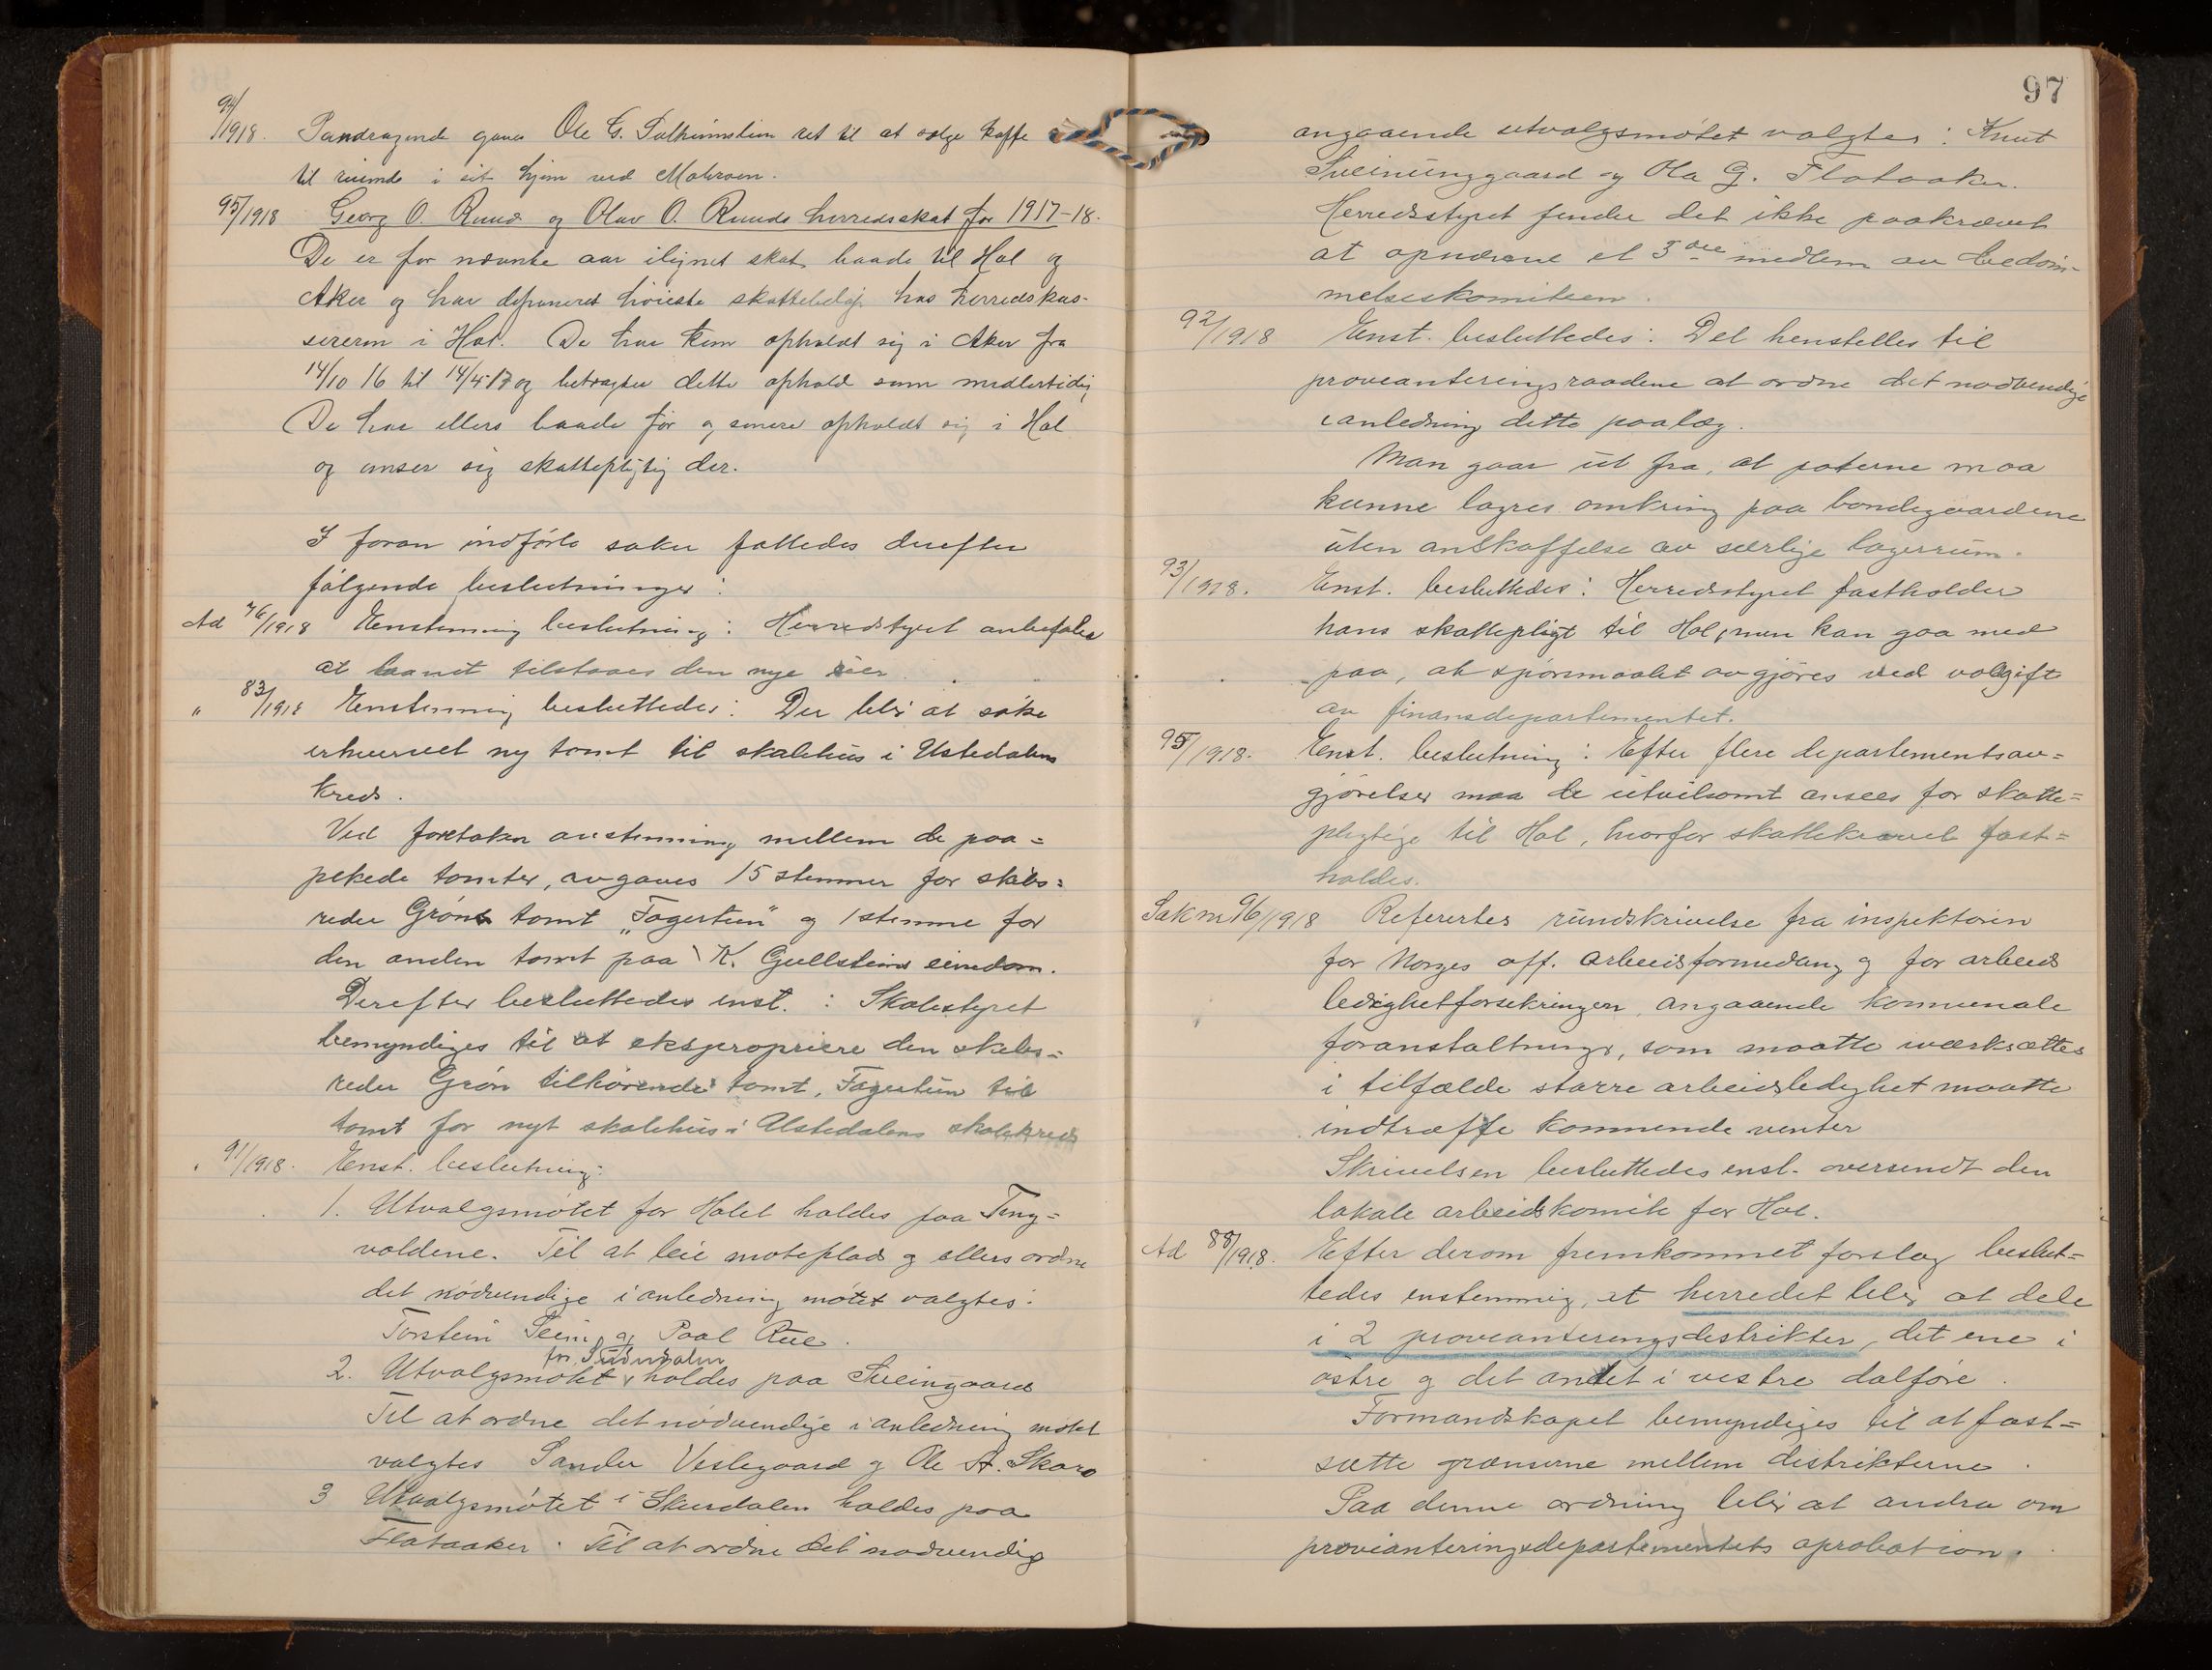 94/1918. Pandragende gaves Ole G. ret til at sælge kaffe
til reisende i sit hjem ved
95/1918 Georg O. Ruud og Olav O. Ruuds herredsskat for 1917-18.
De er for nævnte aar ilignet skat baade til Hol og
Aker og har deponeret høieste skattebeløp hos herredskas-
sereren i Hol. De har kun opholdt sig i Aker fra
14/10 16 til 14/4-17 og betragter dette ophold som midlertidig
De har ellers baade før og senere opholdt sig i Hol
og anser sig skattepligtig der.
I foran indførte saker fattedes derefter
følgende beslutninger:
Ad 76/1918 Enstemmig beslutning: Herredstyret anbefaler
at laanet tilstaaes den nye eier.
" 83/1918 Enstemmig besluttedes: Der blir at søke
erhvervet ny tomt til skolehus i Ustedalens
kreds.
Ved foretaken avstemning mellem de paa=
pekede tomter, avgaves 15 stemmer for skibs=
reder Grøns tomt "Fagertun" og 1 stemme for
den anden tomt paa K. Gullsteins eiendom.
Derefter besluttedes enst.: Skolestyret
bemyndiges til at ekspropriere den skibs=
reder Grøn tilhørende tomt, Fagertun til
tomt for nyt skolehus i Ustedalens skolekreds
" 91/1918. Enst. beslutning:
1. Utvalgsmøtet for Holet holdes paa Ting=
voldene. Til at leie møteplads og ellers ordne
det nødvendige i anledning møtet valgtes:
Torstein Seim og Paal Rue.
for Sudndalen
2. Utvalgsmøtet holdes paa Sveingaard
Til at ordne det nødvendige i anledning møtet
valgtes Sander Veslegaard og Ole A. Skaro
3 Utvalgsmøtet i Skurdalen holdes paa
Flotaaker. Til at ordne det nødvendig
97
angaaende utvalgsmøtet valgtes: Knut
Sveinunggaard og Ola G. Flotaaker.
Herredsstyret finder det ikke paakrævet
at opnævne et 3die medlem av bedøm-
melseskomiteen.
92/1918 Enst. besluttedes: Det henstilles til
provianteringsraadene at ordne det nødvendige
i anledning dette paalæg.
Man gaar ut fra, at poterne maa
kunne lagres omkring paa bondegaardene
uten anskaffelse av særlige lagerrum.
93/1918. Enst. besluttedes: Herredsstyret fastholder
hans skattepligt til Hol, men kan gaa med
paa, at spørsmaalet avgjøres ved voldgift
av finansdepartementet.
95/1918. Enst. beslutning: Efter flere departementsav=
gjørelser maa de utvilsomt ansees for skatte=
pligtige til Hol, hvorfor skattekravet fast=
holdes.
Sak nr 96/1918 Refertes rundskrivelse fra inspektøren
for Norges off. arbeidsformidling og for arbeids
ledighetforsekringen, angaaende komunale
foranstaltninger, som maatte iverksættes
i tilfælde større arbeidsledighet maatte
indtræffe kommende vinter
Skrivelsen besluttedes enst. oversendt den
lokale arbeidskomite for Hol.
Ad 88/1918. Efter derom fremkommet forslag beslut=
tedes enstemmig, at herredet blir at dele
i 2 provianteringsdistrikter, det ene i
østre og det andet i vestre dalføre.
Formandskapet bemyndiges til at fast=
sætte grænserne mellem distrikterne.
Paa denne ordning blir at andra om
provianteringsdepartementets aprobation.